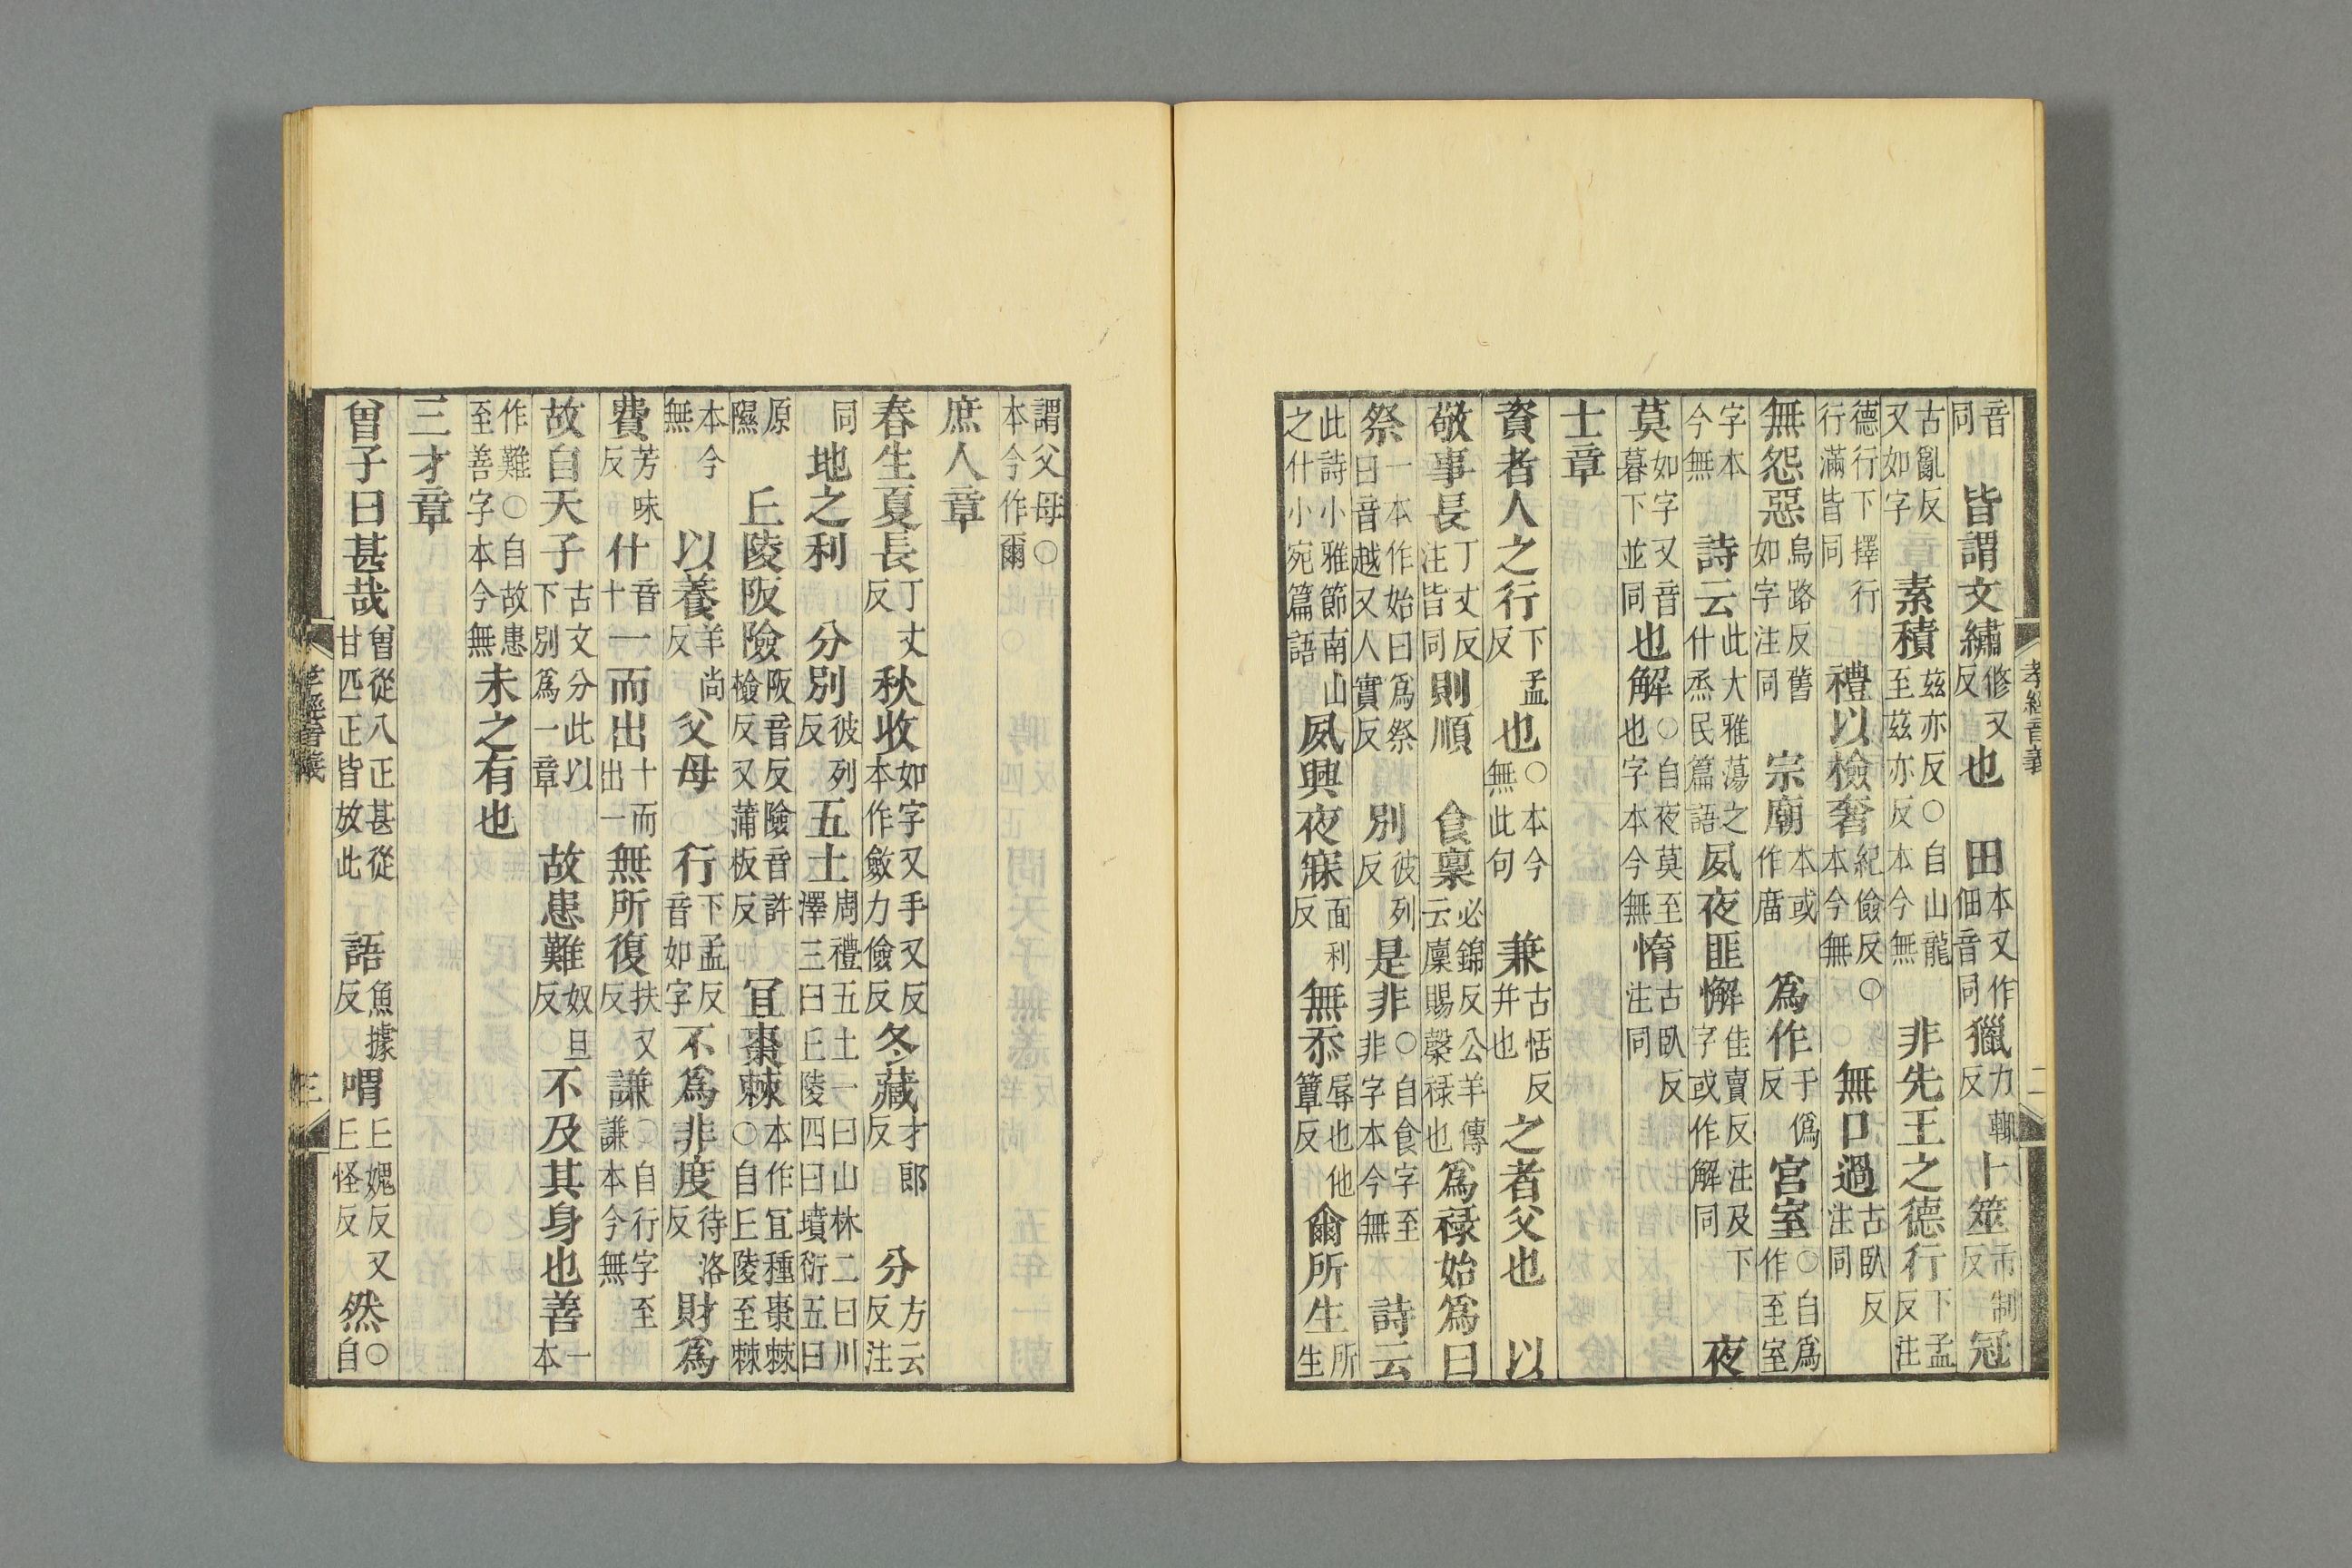 孝經音義 二
音同 皆謂文繡脩又反也 田本又作佃音同獵力輙反卜筮市制反冠
古亂反又如字 素積茲亦反○自山龍至茲亦反本今無 非先王之德行下孟反注
德行下擇行行滿皆同 禮以檢奢紀儉反○本今無 無口過古臥反注同
無怨惡烏路反舊如字注同 宗廟本或作庿 爲作于僞反宮室○自爲作至室
字本今無 詩云此大雅蕩之什烝民篇語夙夜匪懈佳賣反注及下字或作解同 夜
莫如字又音暮下並同也解○自夜莫至也字本今無惰古臥反注同
士章
資者人之行下孟反也○本今無此句 兼古恬反并也之者父也 以
敬事長丁丈反注皆同則順 食稟必錦反公羊傳云廩賜糓祿也爲祿始爲曰
祭一本作始曰爲祭曰音越又人實反 別彼列反是非○自食字至非字本今無 詩云
此詩小雅節南山之什小宛篇語夙興夜寐面利反 無忝辱也他簟反爾所生所生
謂父母○本今作爾
庶人章
春生夏長丁丈反 秋收如字又手又反本作斂力儉反冬藏才郎反 分方云反注
同 地之利 分別彼列反五土周禮五土一曰山林二曰川澤三曰丘陵四曰墳衍五曰
原隰 丘陵阪險阪音反險音許檢反又蒲板反 宜棗棘本作宜種棗棘○自丘陵至棘
本今無 以養羊尚反父母 行下孟反音如字不爲非度待洛反財爲
費芳味反什音十一而出十而出一無所復扶又反謙○自行字至謙本今無
故自天子古文分此以下別爲一章 故患難奴旦反不及其身也善一本
作難○自故患至善字本今無未之有也
三才章
曾子曰甚哉曾從八正甚從甘匹正皆放此 語魚據反喟丘媿反又丘怪反然○自
孝經音義 三